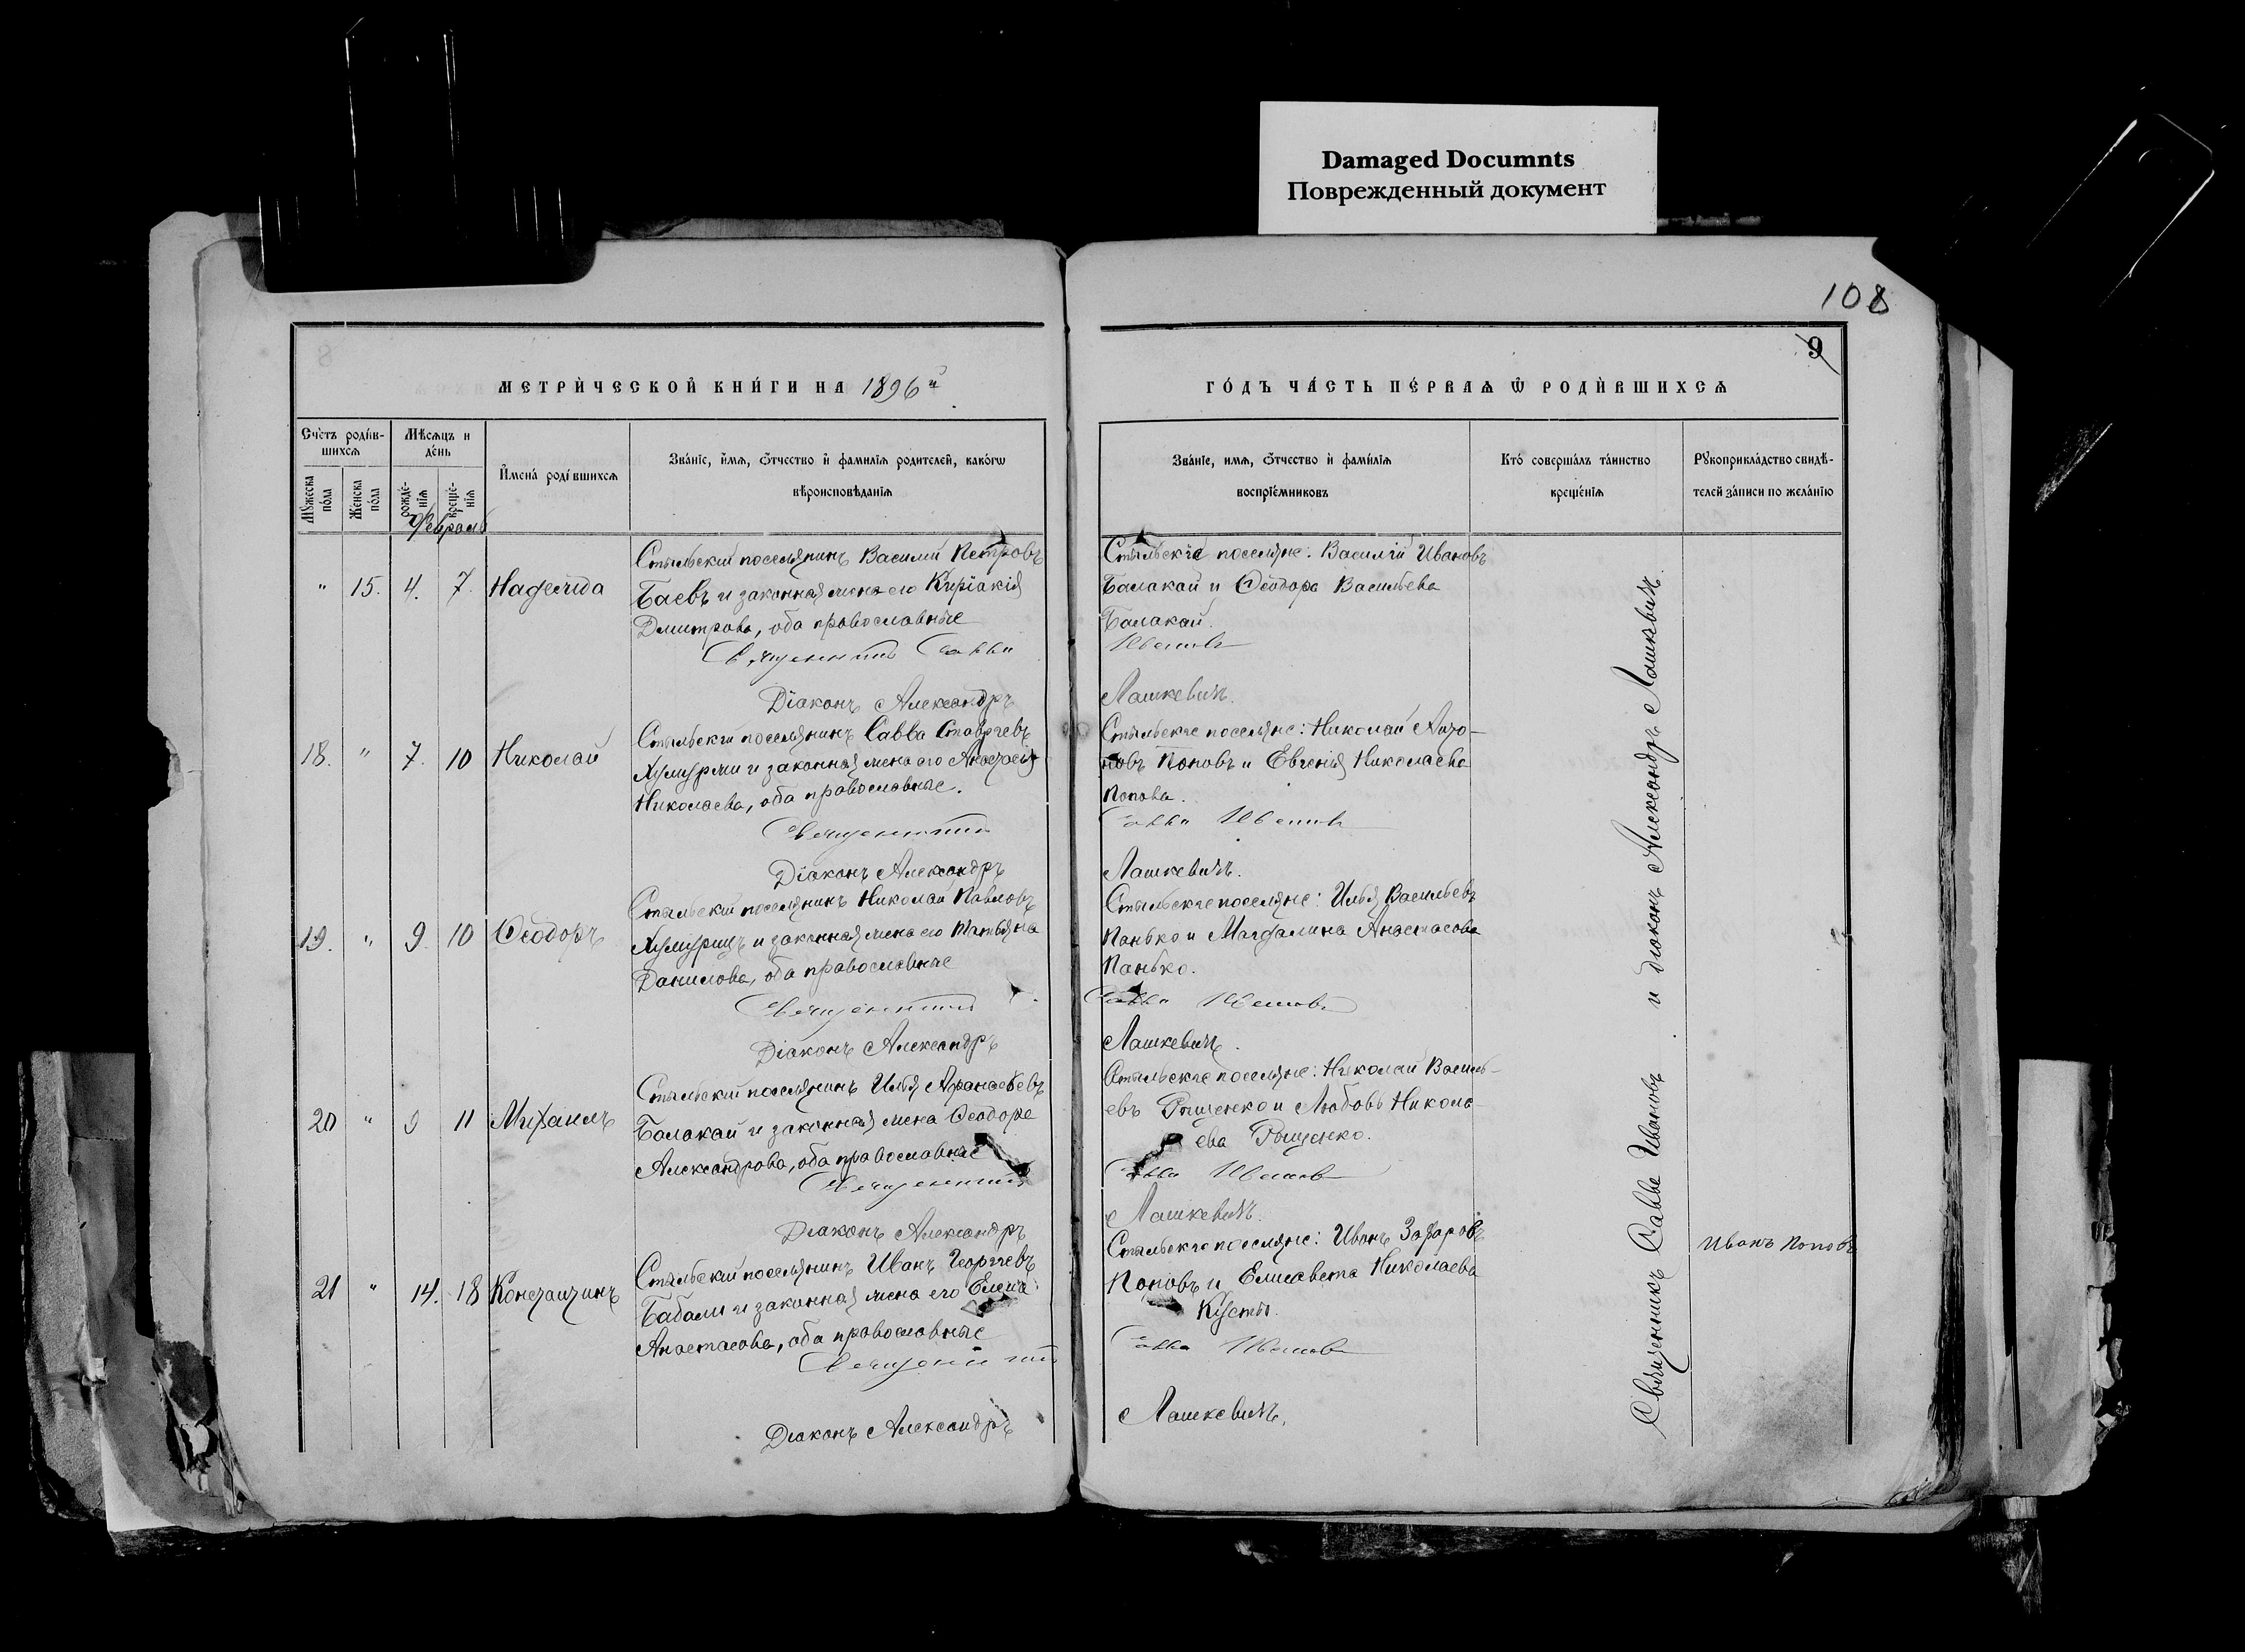 Damaged Documnts
Поврежденный документ
108
9
МЕТРИ́ЧЕСКОЙ КНИ́ГИ НА 1896й
ГО́ДЪ ЧА́СТЬ ПЕ́РВАѦ Ѡ҆ РОДИ́ВШИХСѦ
Счетъ роди́в-
шихсѧ
Мꙋжеска по́ла
Женска по́ла
Мѣсѧцъ и де́нь
рожде-нїѧ
креще-нїѧ
И҆мена̀ роди́вшихсѧ
Зва́нїе, и҆́мѧ, ѻ҆́тчество и҆ фамилїѧ родителей, како́гѡ
вѣроисповѣданїѧ
Зва́нїе, имѧ, ѻ҆́тчество и҆ фами́лїѧ
воспрїе́мниковъ
Кто̀ соверша́лъ та́инство
креще́нїѧ
Рꙋкоприкла́дство свидѣ́-
телей за́писи по жела́нїю
Февраль
" 15. 4. 7. Надежда
Стыльскій поселянинъ Василій Петровъ
Баевъ и законная жена его Киріакія
Дмитрова, оба православные
Священникъ Савва
Діаконъ Александръ
Стыльскіе поселяне: Василій Ивановъ
Балакай и Ѳеодора Васильева
Балакай.
Ивановъ
Лашкевичъ.
18. " 7. 10 Николай
Стыльскій поселянинъ Савва Ставріевъ
и законная жена его Анастасія
Николаева, оба православные.
Священникъ
Діаконъ Александръ
Стыльскіе поселяне: Николай
Поповъ и Евгенія Николаева
Попова.
Савва Ивановъ
Лашкевичъ.
19. " 9. 10 Ѳеодоръ
Стыльскій поселянинъ Николай Павловъ
и законная жена его Татьяна
Данилова, оба православные
Священникъ
Діаконъ Александръ
Стыльскіе поселяне: Илья Васильевъ
Панько и Магдалина Анастасова
Панько.
Савва Ивановъ
Лашкевичъ.
20 " 9 11 Михаилъ
Стыльскій поселянинъ Илья Афанасьевъ
Балакай и законная жена Ѳеодора
Александрова, оба православные
Священникъ
Діаконъ Александръ
Стыльскіе поселяне: Николай Василь-
евъ Рыщенко и Любовь Никола-
ева Рыщенко.
Савва Ивановъ
Лашкевичъ.
21 " 14. 18 Константинъ
Стыльскій поселянинъ Иванъ Георгіевъ
Бабали и законная жена его Елена
Анастасова, оба православные
Священникъ
Діаконъ Александръ
Стыльскіе поселяне: Иванъ Захаровъ
Поповъ и Елисавета Николаева
Савва Ивановъ
Лашкевичъ.
Священникъ Савва Ивановъ и діаконъ Александръ Лашкевичъ.
Иванъ Поповъ